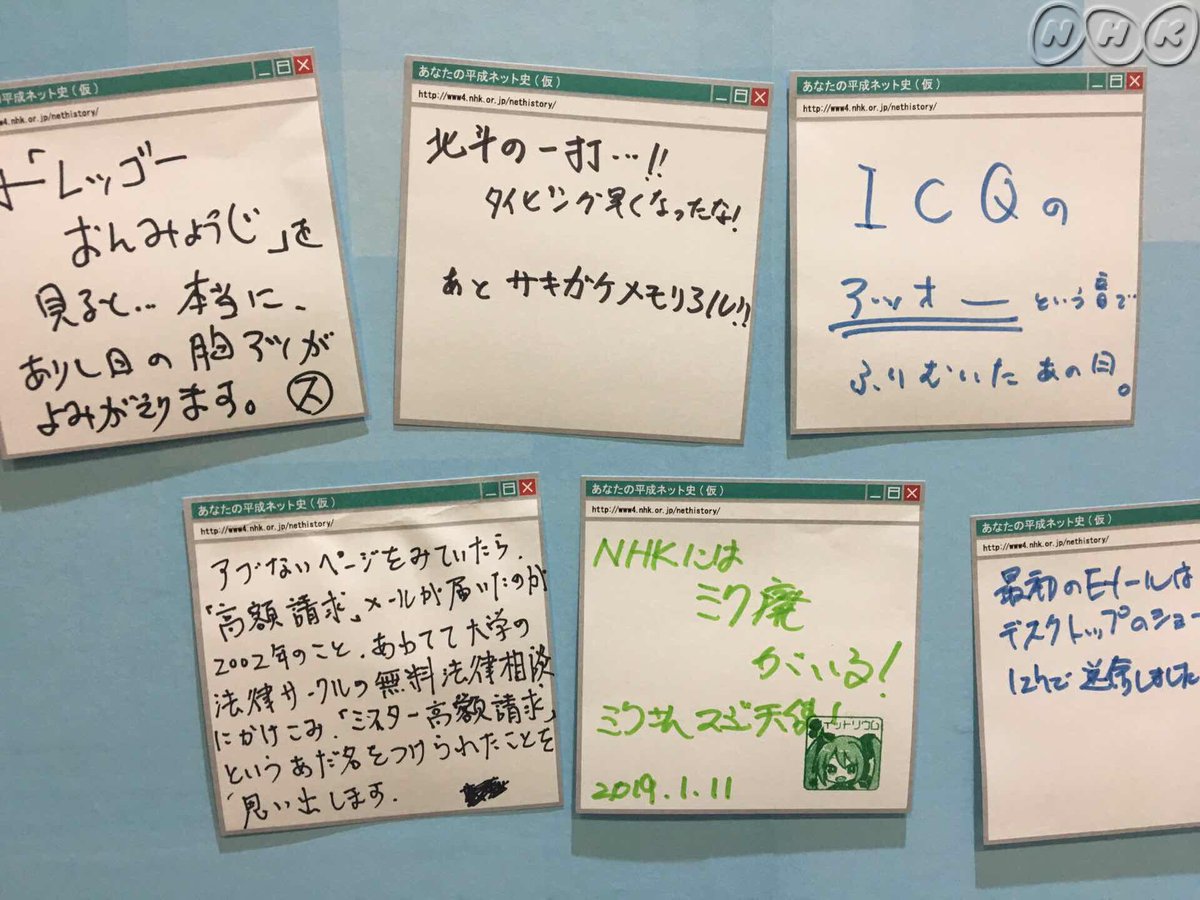 NHK
の平成ネット史(仮)
w4.nhk.or.jp/nethistory/
「レッゴー
おんみょうじ」を
見ると… 本当に、
ありし日の胸アツが
よみがえります。 ㋜
あなたの平成ネット史(仮)
http://www4.nhk.or.jp/nethistory/
北斗の一打…!!
タイピング早くなったな!
あと サキガケメモリアル!!
あなたの平成ネット史(仮)
http://www4.nhk.or.jp/nethistory/
ICQの
アッオーという音で
ふりむいた あの日。
あなたの平成ネット史(仮)
http://www4.nhk.or.jp/nethistory/
アブないページをみていたら、
「高額請求」メールが届いたのが
2002年のこと、あわてて大学の
法律サークルの無料法律相談
にかけこみ、「ミスター高額請求」
というあだ名をつけられたことを
思い出します.
あなたの平成ネット史(仮)
http://www4.nhk.or.jp/nethistory/
NHKには
ミク廃
がいる!
ミクさんマジ天使!
イットリウム
2019.1.11
あなたの平成ネット史(仮)
http://www4.nhk.or.jp/nethistory/
最初のEメールは
デスクトップのショー
で送信しました